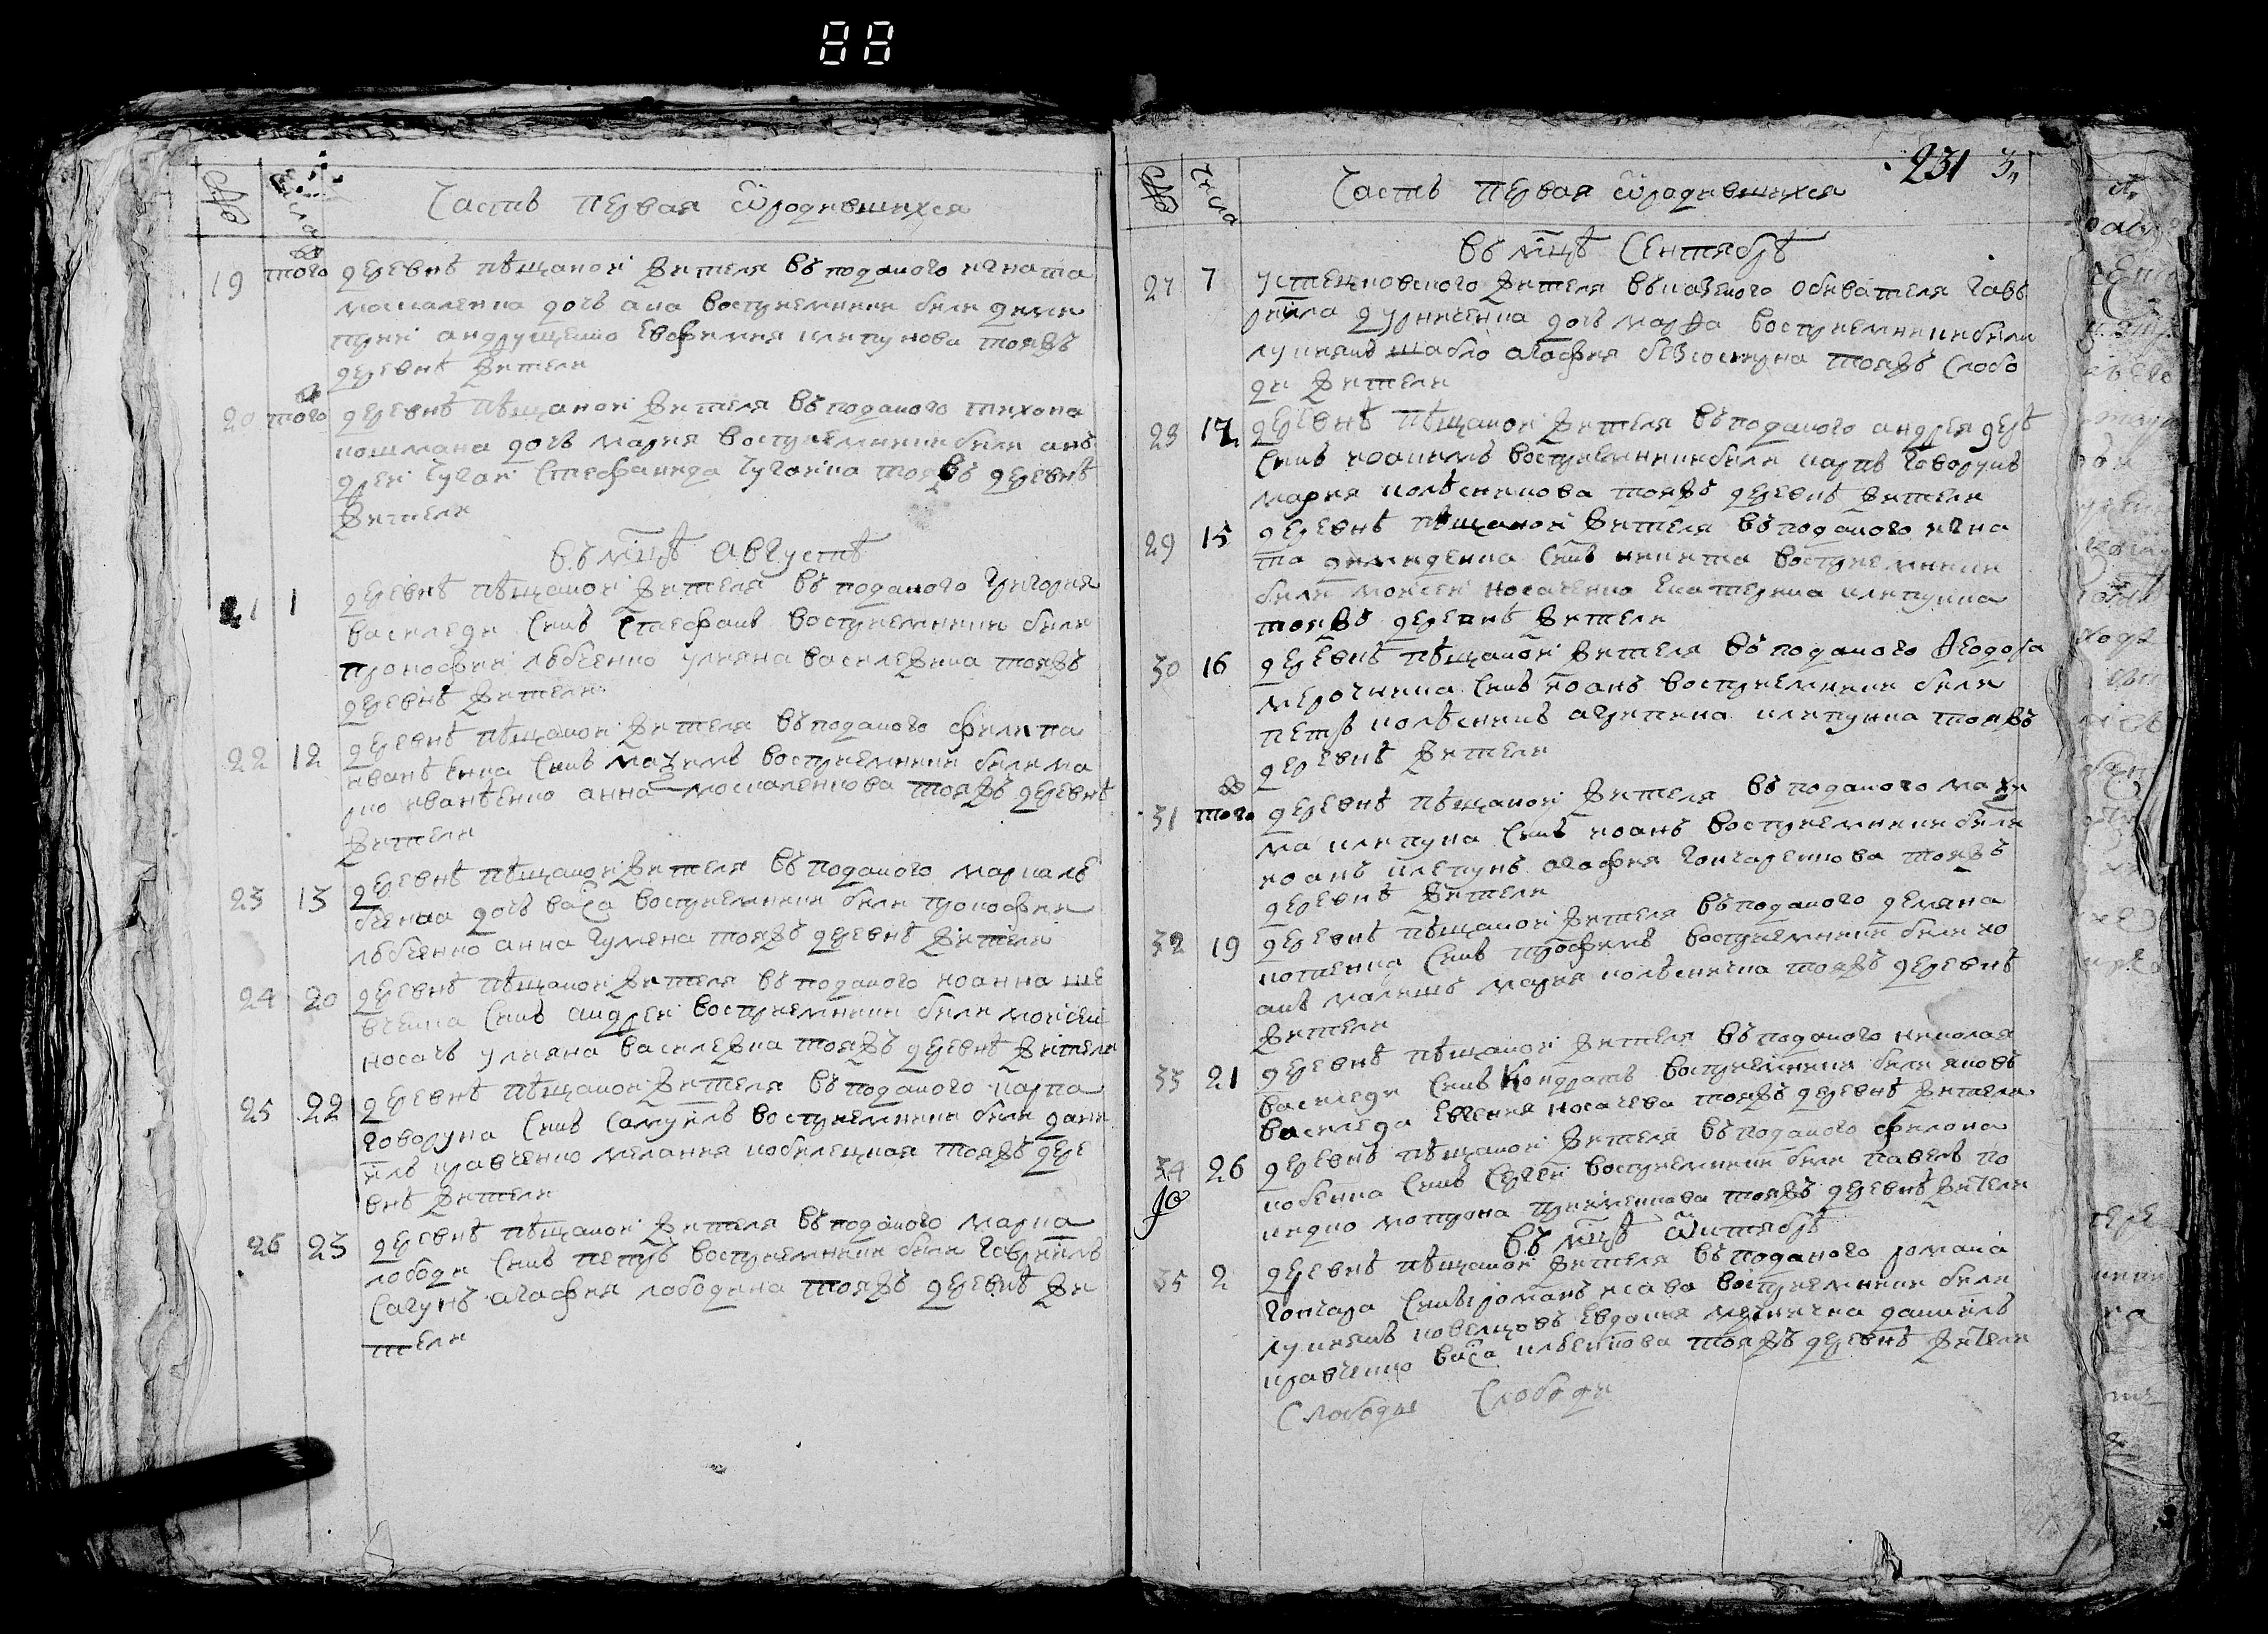 88
№ числа Часть первая ѿродившихся
19 тогож деревнѣ пѣщаной жителя въподаного игната
москаленка дочь ана восприемники были дими
трий андрущенко Евфимия шлепунова тояжъ
деревнѣ жители
20 тогож деревнѣ пѣщаной жителя въподаного тихона
кошмана дочь мария восприемники были анъ
дрей Чугай Стефанида Чугаіна тояжъ деревнѣ
жители
въ мцѣ августѣ
21 1 деревнѣ пѣщаной жителя въ поданого Григория
василеди Синъ Стефанъ восприемники били
прокофий лѣбченко улияна василежика тояжъ
деревнѣ жители
22 12 деревнѣ пѣщаной жителя въподаного филипа
иванѣенка Синъ мазимъ восприемники били ма
рко иванѣенко анна москаленкова тояжъ деревнѣ
жители
23 13 деревнѣ пѣщаной жителя въ поданого марка лѣ
бченка дочь васа восприемники били прокофий
лѣбченко анна Гумена тояжъ деревнѣ жители
24 20 деревнѣ пѣщаной жителя въ поданого иоанна ше
вченка Синъ андрей восприемники били моисей
носачъ улияна василежка тояжъ деревнѣ жители
25 22 деревнѣ пѣщаной жителя въ поданого карпа
говоруна Синъ Самуилъ восприемники били дани
илъ кравченко мелания кобилецкая тояжъ дере
внѣ жители
26 23 деревнѣ пѣщаной жителя въподаного марка
лободи Синъ петръ восприемники били Гавриилъ
Сагунъ агафия лободина тояжъ деревнѣ жи
тели
231 3
№ числа Часть первая ѿродившихся
въ мцѣ Сентябрѣ
27 7 устещковского жителя въказеного обивателя гавъ
рила дурниченка дочь марѳа восприемникибили
лукиянъ шабло агафия безкостуна тояжъ Слобо
ди жители
28 12 деревнѣ пѣщаной жителя въподаного андрея дерѣ
Синъ иоакимъ восприемникибили карпъ говорунъ
мария колѣсникова тояжъ деревнѣ жители
29 15 деревнѣ пѣщаной жителя въподаного игна
та демиденка Синъ никита восприемники
били моисей носаченко Екатерина шлепунка
тояжъ деревнѣ жители
30 16 деревнѣ пѣщаной жителя въ поданого Ѳеодора
мирочника Синъ иоанъ восприемники били
петръ колѣсникъ агрепина шлепунка тояжъ
деревнѣ жители
31 тогож деревнѣ пѣщаной жителя въ поданого макси
ма шлепуна Синъ иоанъ восприемники били
иоанъ шлепунъ агафия гончаренкова тояжъ
деревнѣ жители
32 19 деревнѣ пѣщаной жителя въподаного демяна
котенка Синъ трофимъ восприемники били ио
анъ малишъ мария колѣсничка тояжъ деревнѣ
жители
33 21 деревнѣ пѣщаной жителя въподаного николая
василеди Синъ Кондратъ восприемники били яковъ
василеда Евгения носачева тояжъ деревнѣ жители
34 26 деревнѣ пѣщаной жителя въподаного филона
кобенка Синъ Сергей восприемники били павелъ по
кидко мотрона тояжъ деревнѣ жители
въ мцѣ ѿктябрѣ
35 2 деревнѣ пѣщаной жителя въподаного романа
гончара Синъ романъ исава восприемники били
лукиянъ Евдокия даниилъ
кравченко васа илѣенкова тояжъ деревнѣ жители
Слободи Слободи